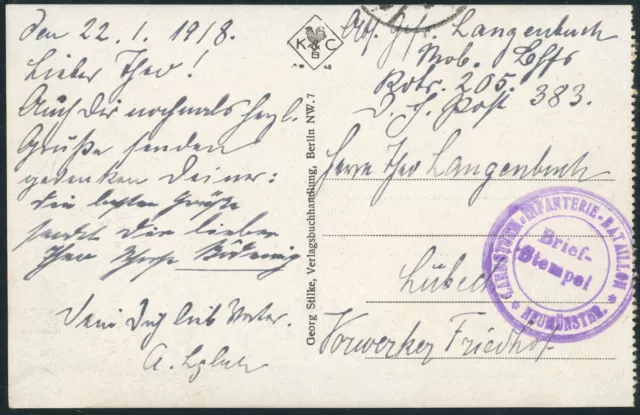 den 22. 1. 1918.
Lieber Theo!
Auch Dir nochmals herzl.
Grüße senden
gedenken Deiner:
die besten Grüße
sendet Dir lieber
Theo
Dein Dich lieb. Vater.
K & C
B
Georg Stilke, Verlagsbuchhandlung, Berlin NW. 7
Abs. Gefr. Langenbuch
Mob. Etpfs
Kdtr. 205.
D. F. Post 383.
Herrn Theo Langenbuch
Lübeck
Vorwerker Friedhof
LANDSTURM-INFANTERIE-BATAILLON
Brief-
Stempel
* NEUMÜNSTER. *